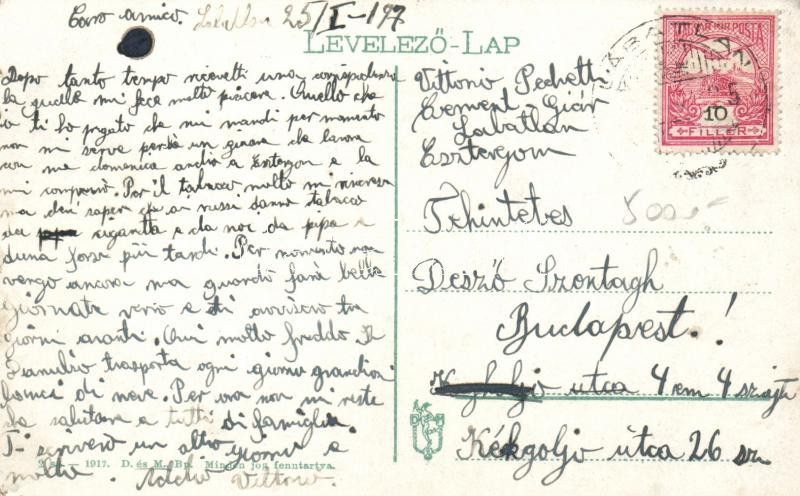 Caro amico Labatlan 25/I-197
LEVELEZŐ-LAP
Dopo tanto tempo ricevetti una corrispondenza
la quelle mi fece molto piacere. Quello che
io ti ho pregato che mi mandi per momento
non mi serve perchè un giovane che lavora
con me domenica andra a Estergon e la
mi comprerò. Per il tabacco molto mi rincresce
ma devi sapere che ai russi danno tabacco
da sigaretta e da noi da pipa e
d'una forsa più tardi. Per momento non
vengo ancora ma quando farà belle
giornate verrò e ti avviserò tre
giorni avanti. Qui molto freddo. Il
Danubio trasporta ogni giorno grandiosi
di neve. Per ora non mi resta
che salutare e tutti di famiglia.
Ti scriverò un altro giorno e
molto. Addio Vittorio.
2 sz. — 1917. D. és M., Bp. Minden jog fenntartva.
MAGYAR KIR. POSTA
10
FILLÉR
LÁBATLAN
Vittorio Pedretti
Cement-Giár
Labatlan
Esztergom
Tehintetes
500.-
Deszö Szontagh
Budapest.!
utca 4 em 4 sz ajtó
Kékgoljo útca 26 sz.